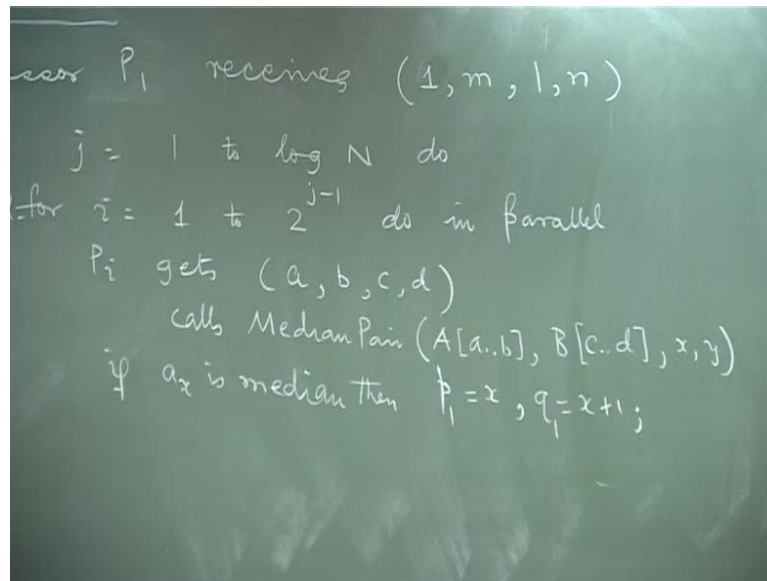 ssor P₁ receives (1, m, 1, n)
j = 1 to log N do
for i = 1 to 2^{j-1} do in parallel
Pᵢ gets (a, b, c, d)
calls MedianPair (A[a..b], B[c..d], x, y)
if aₓ is median then p₁ = x, q₁ = x+1;